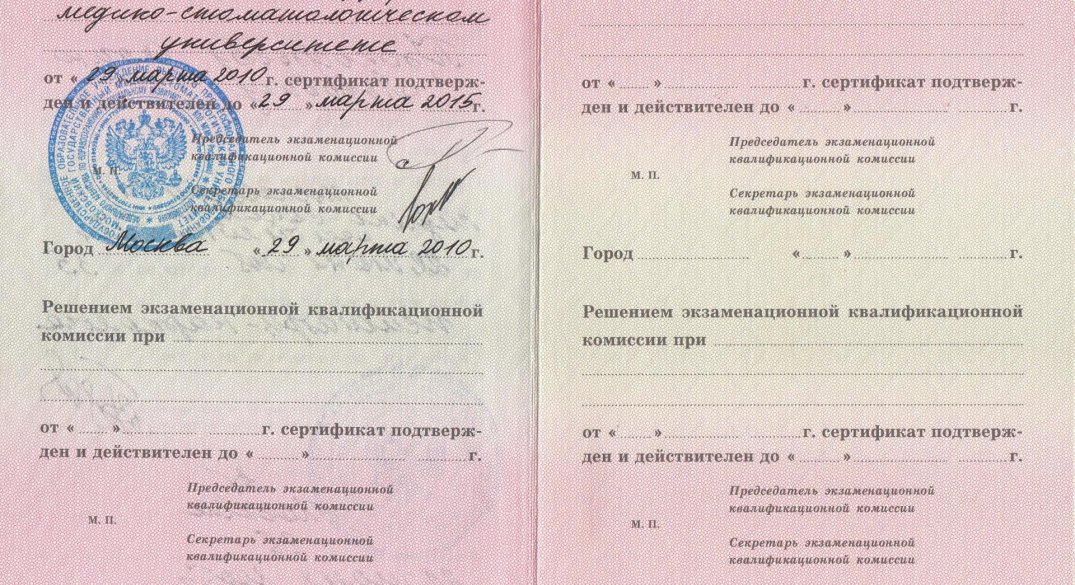 медико-стоматологическом
университете
от « 29 » марта 2010 г. сертификат подтверж-
ден и действителен до « 29 » марта 2015 г.
Председатель экзаменационной
квалификационной комиссии
м. п.
Секретарь экзаменационной
квалификационной комиссии
Город Москва « 29 » марта 2010 г.
Решением экзаменационной квалификационной
комиссии при
от « » г. сертификат подтверж-
ден и действителен до « » г.
Председатель экзаменационной
квалификационной комиссии
м. п.
Секретарь экзаменационной
квалификационной комиссии
от « » г. сертификат подтверж-
ден и действителен до « » г.
Председатель экзаменационной
квалификационной комиссии
м. п.
Секретарь экзаменационной
квалификационной комиссии
Город « » г.
Решением экзаменационной квалификационной
комиссии при
от « » г. сертификат подтверж-
ден и действителен до « » г.
Председатель экзаменационной
квалификационной комиссии
м. п.
Секретарь экзаменационной
квалификационной комиссии